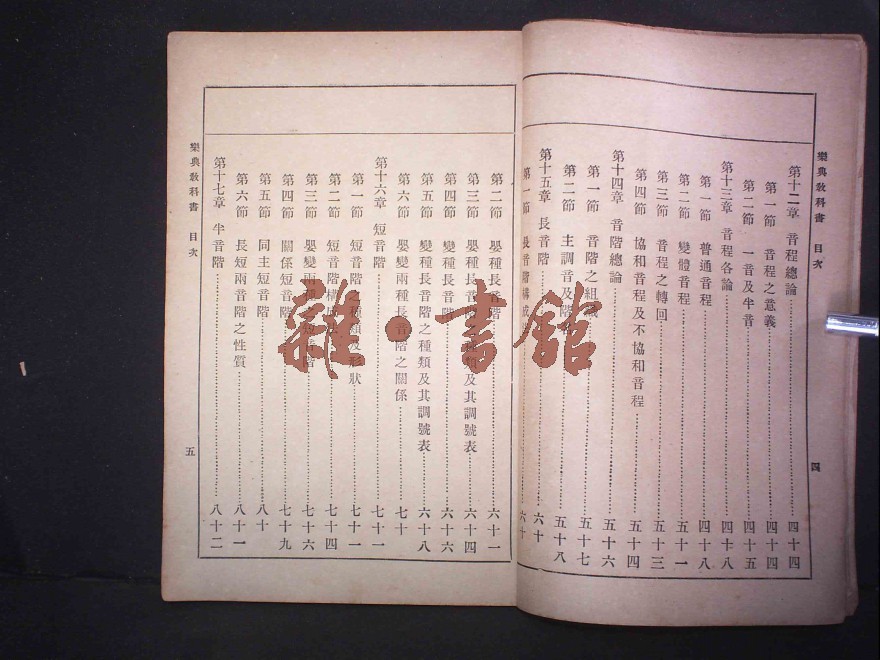 樂典教科書 目次
四
第十二章 音程總論 四十四
第一節 音程之意義 四十四
第二節 一音及半音 四十五
第十三章 音程各論 四十八
第一節 普通音程 四十八
第二節 變體音程 五十一
第三節 音程之轉回 五十三
第四節 協和音程及不協和音程 五十四
第十四章 音階總論 五十六
第一節 音階之組 五十七
第二節 主調音及階 五十八
第十五章 長音階 六十
第一節 長音階構成 六十
第二節 嬰種長音階 六十一
第三節 嬰種長音階之種類及其調號表 六十四
第四節 變種長音階 六十六
第五節 變種長音階之種類及其調號表 六十八
第六節 嬰變兩種長音階之關係 七十
第十六章 短音階 七十一
第一節 短音階之種類及形狀 七十一
第二節 短音階構 七十四
第三節 嬰變兩種之短音階 七十六
第四節 關係短音階 七十九
第五節 同主短音階 八十
第六節 長短兩音階之性質 八十一
第十七章 半音階 八十二
樂典教科書 目次
五
雜·書館